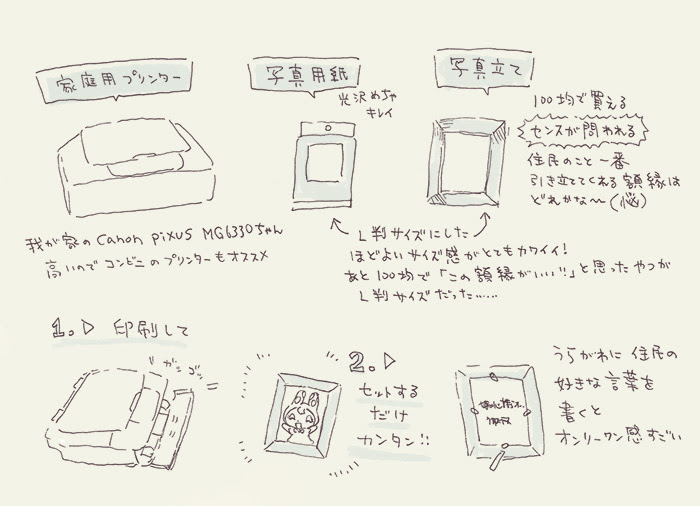 家庭用プリンター
写真用紙
写真立て
光沢めちゃ
キレイ
100均で買える
センスが問われる
住民のこと一番
引き立ててくれる額縁は
どれかな〜(悩)
我が家のCanon PIXUS MG6330ちゃん
高いのでコンビニのプリンターもオススメ
L判サイズにした
ほどよいサイズ感がとてもカワイイ!
あと100均で「この額縁がいい!!」と思ったやつが
L判サイズだった……
1.▷ 印刷して
ガシ
ゴン
2.▷
セットする
だけ
カンタン!!
うらがわに住民の
好きな言葉を
書くと
オンリーワン感すごい